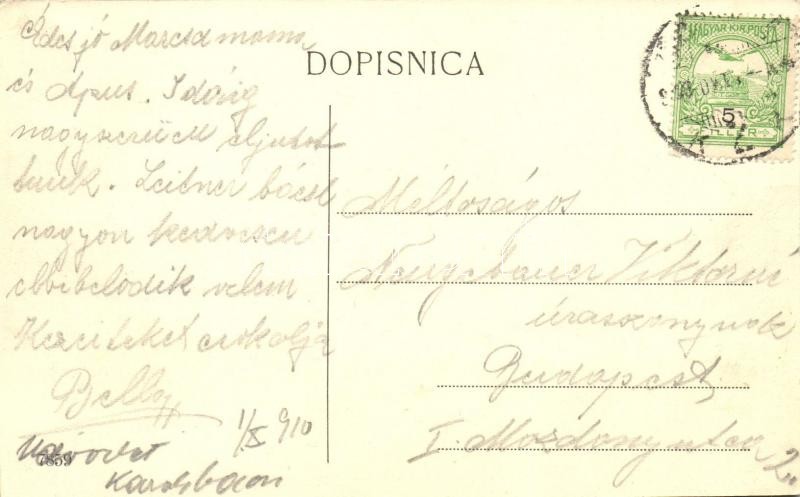 Édes jó Marcsa mama
és Apus. Idáig
nagyszerűen eljutot
tunk. Leitner bácsi
nagyon kedvesen
elbibelődik velem
Kezeiteket csókolja
Belly
1/X 910
Üdvözlet
7859
DOPISNICA
MAGYAR KIR. POSTA
5
Méltóságos
Neugebauer Viktorné
úrasszonynak
Budapest
I. Mozdony utca 2.